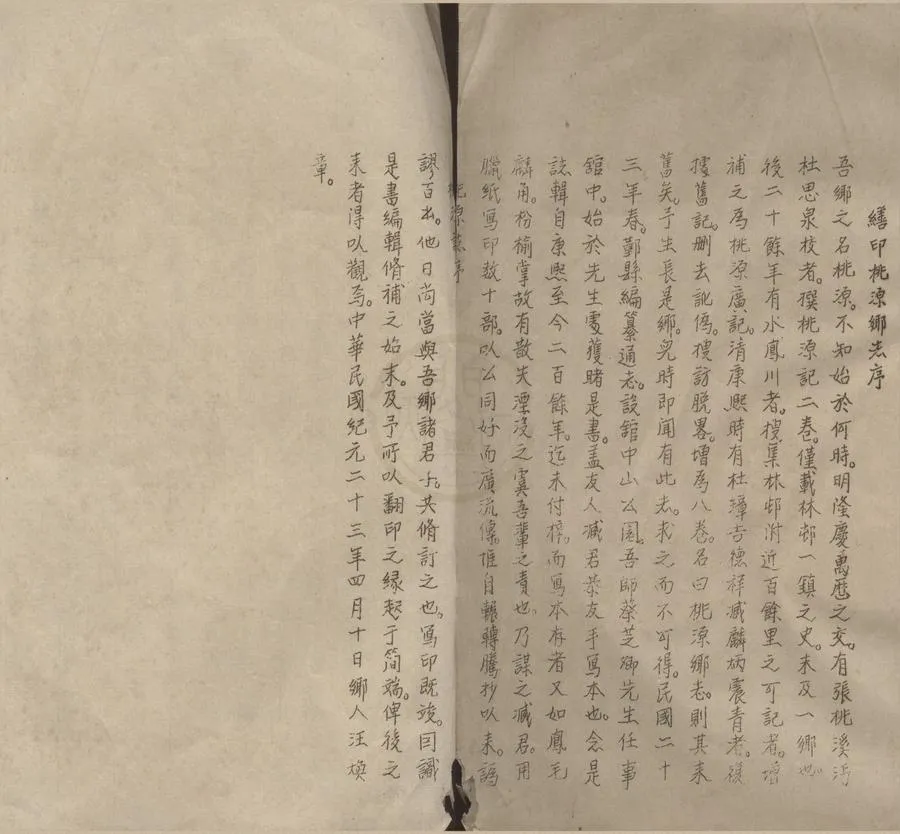 繕印桃源鄉志序
吾鄉之名桃源。不知始於何時。明隆慶萬曆之交。有張桃溪沔
杜思泉校者。撰桃源記二卷。僅載林邨一鎮之史。未及一鄉也。
後二十餘年有水鳳川者。搜集林邨附近百餘里之可記者。增
補之爲桃源廣記。清康熙時有杜璋吉德祥臧麟炳震青者。復
據舊記。刪去訛僞。搜訪脫畧。增爲八卷。名曰桃源鄉志。則其來
舊矣。予生長是鄉。兒時即聞有此志。求之而不可得。民國二十
三年春。鄞縣編纂通志。設舘中山公園。吾師蔡芝卿先生任事
舘中。始於先生處獲睹是書。蓋友人臧君恭友手寫本也。念是
誌輯自康熙至今二百餘年。迄未付榜。而寫本存者又如鳳毛
麟角。枌榆掌故有散失湮沒之虞吾輩之責也。乃謀之臧君。用
臘紙寫印数十部。以公同好而廣流傳。惟自輾轉騰抄以來。譌
桃源志序
謬百出。他日尚當與吾鄉諸君子。共脩訂之也。寫印既竣。因識
是書編輯脩補之始末。及予所以翻印之緣起于简端。俾後之
来者得以觀焉。中華民國紀元二十三年四月十日鄉人汪煥
章。